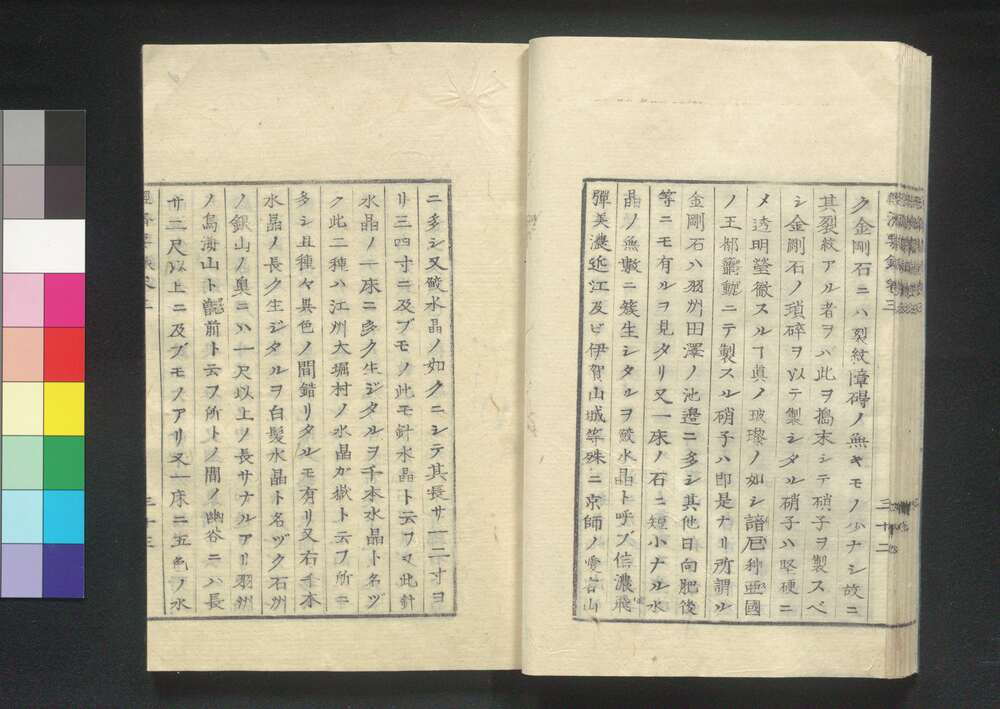 經濟要録卷三
三十二
ク金剛石ニハ裂紋障碍ノ無キモノ少ナシ故ニ
其裂紋アル者ヲハ此ヲ搗末シテ硝子ヲ製スベ
シ金剛石ノ瑣碎ヲ以テ製シタル硝子ハ堅硬ニ
メ透明瑩徹スルヿ眞ノ玻瓈ノ如シ諳厄利亞國
ノ王都龍動ニテ製スル硝子ハ即是ナリ所謂ル
金剛石ハ羽州田澤ノ池邉ニ多シ其他日向肥後
等ニモ有ルヲ見タリ又一床ノ石ニ短小ナル水
晶ノ無數ニ簇生シタルヲ鮫水晶ト呼ブ信濃飛
彈美濃近江及ビ伊賀山城等殊ニ京師ノ愛宕山
ニ多シ又鮫水晶ノ如クニシテ其長サ一二寸ヨ
リ三四寸ニ及ブモノ此モ針水晶ト云フ此針
水晶ノ一床ニ多ク生ジタルヲ千本水晶ト名ヅ
ク此二種ハ江州大堀村ノ水晶ガ嶽ト云フ所ニ
多シ且種々異色ノ間錯リタルモ有リ又右千本
水晶ノ長ク生ジタルヲ白髮水晶ト名ヅク石州
ノ銀山ノ奥ニハ一尺以上ノ長サナルアリ羽州
ノ鳥海山ト龍前ト云フ所トノ間ノ幽谷ニハ長
サ二尺以上ニ及ブモノアリ又一床ニ五色ノ水
三十三